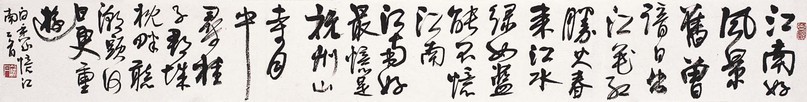 江南好
風景
舊曾
諳日出
江花紅
勝火春
来江水
绿如藍
能不憶
江南
江南好
最憶是
杭州山
寺月
中
尋桂
子郡
枕畔聽
潮頭何
日更重
遊
白居易憶江
南